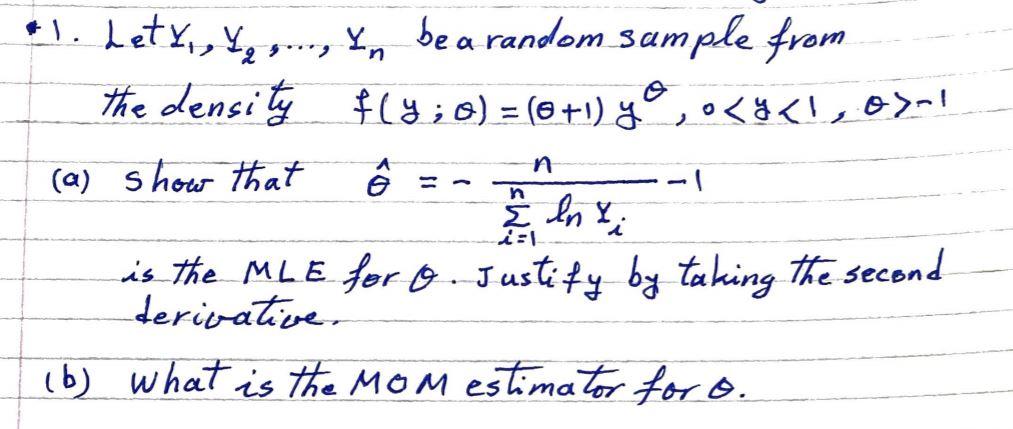 *1. Let Y₁, Y₂, ..., Yₙ be a random sample from
the density f(y; θ) = (θ+1) y^θ, 0<y<1, θ>-1
(a) show that θ̂ = - n / Σ_{i=1}^{n} ln Yᵢ -1
is the MLE for θ. Justify by taking the second
derivative.
(b) What is the MOM estimator for θ.